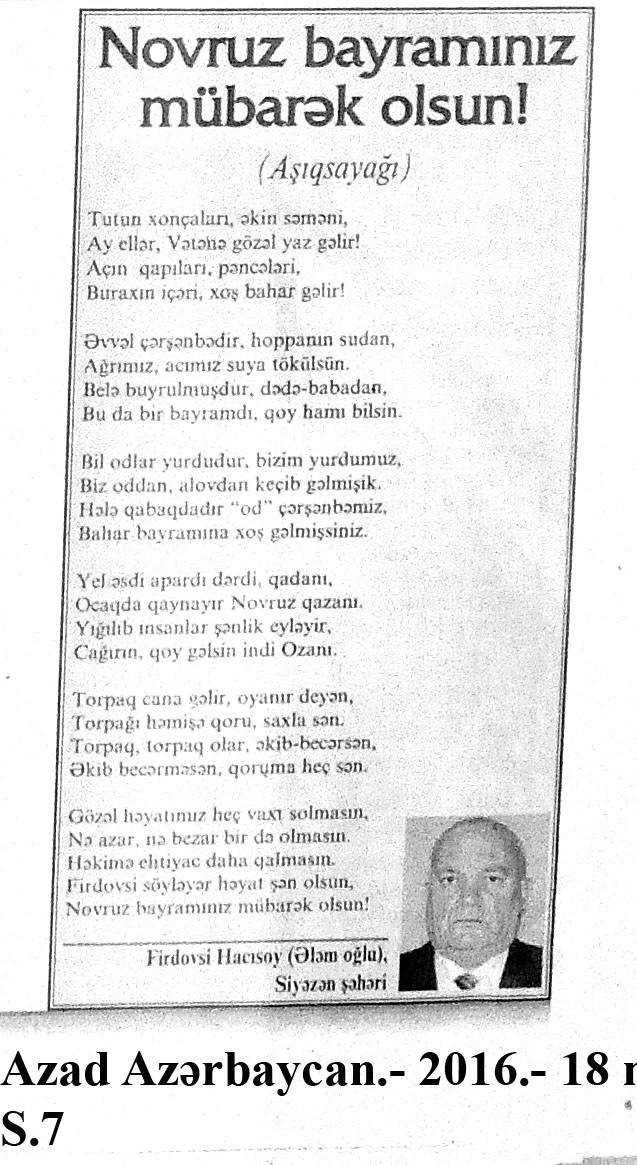 Novruz bayramınız
mübarək olsun!
(Aşıqsayağı)
Tutun xonçaları, əkin səməni,
Ay ellər, Vətənə gözəl yaz gəlir!
Açın qapıları, pəncələri,
Buraxın içəri, xoş bahar gəlir!
Əvvəl çərşənbədir, hoppanın sudan,
Ağrımız, acımız suya tökülsün.
Belə buyrulmuşdur, dədə-babadan,
Bu da bir bayramdı, qoy hamı bilsin.
Bil odlar yurdudur, bizim yurdumuz,
Biz oddan, alovdan keçib gəlmişik.
Hələ qabaqdadır “od” çərşənbəmiz,
Bahar bayramına xoş gəlmişsiniz.
Yel əsdi apardı dərdi, qadanı,
Ocaqda qaynayır Novruz qazanı.
Yığılıb insanlar şənlik eyləyir,
Cağırın, qoy gəlsin indi Ozanı.
Torpaq cana gəlir, oyanır deyən,
Torpağı həmişə qoru, saxla sən.
Torpaq, torpaq olar, əkib-becərsən,
Əkib becərməsən, qoruma heç sən.
Gözəl həyatımız heç vaxt solmasın,
Nə azar, nə bezar bir də olmasın.
Həkimə ehtiyac daha qalmasın.
Firdovsi söyləyər həyat şən olsun,
Novruz bayramınız mübarək olsun!
Firdovsi Hacısoy (Ələm oğlu),
Siyəzən şəhəri
Azad Azərbaycan.- 2016.- 18
S.7